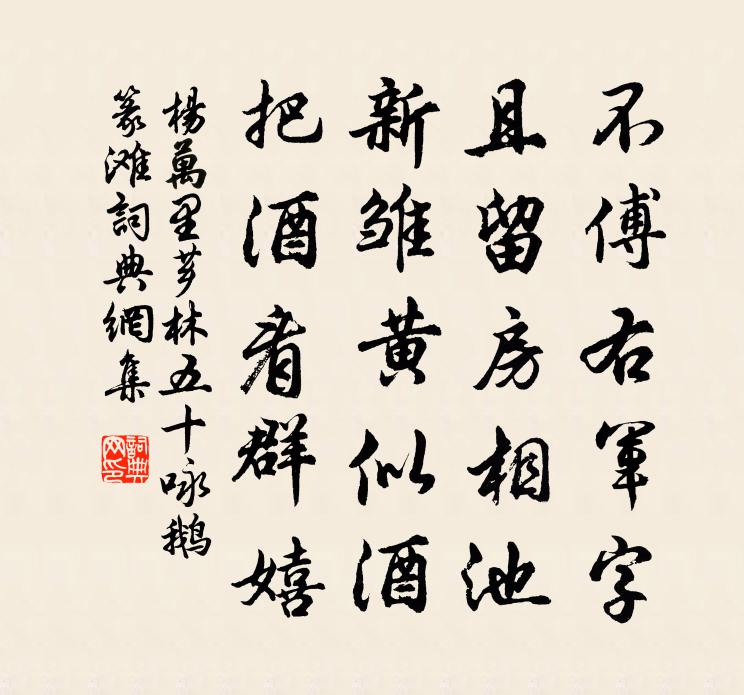 不傅右軍字
且留房相池
新雏黄似酒
把酒看群嬉
楊萬里芗林五十咏鹅
篆滩詞典網集
詞典
网印